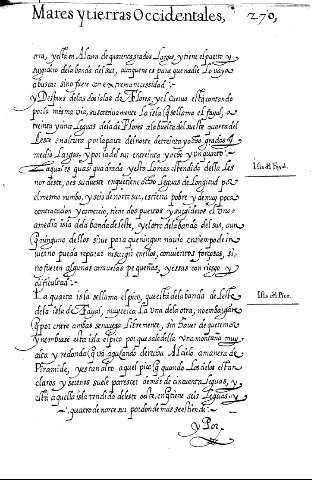 Mares y tierras Occidentales, 270,
otra, y esto en Altura de quarenta grados Largos, y tiene el puerto y
surgidero dela banda del sur, aunque no es para que nadie lo vaya
abuscar sino fuere con extrema necessidad:
y Despues delas dos islas de Flores, y el Cuerno esta contando
por la misma via, sucesivamente la isla que se llama el fayal, a
treinta y una Leguas dela de Flores ala buelta del sueste quarta del
Leste en altura por la parte del norte de treinta y ocho grados y
medio Largos, y por la del sur en treinta y ocho y un quarto.
La qual es quasi quadrada y esto Lo mas estendido della Les
nordeste, oes sudueste en que tiene ocho Leguas de Longitud por
el mesmo rumbo, y seis de norte sur, es tierra pobre y de muy poca
contratacion y comercio, tiene dos puertos y surgideros el uno a
media isla dela banda de leste, y el otro dela banda del sur, aun
que ninguno dellos sirue para que ningun nauio en tiempo de in
uierno pueda reparar ni surgir en ellos,
fuesen algunas carauelas pequeñas, y estas con riesgo y
dificultad:
La quarta isla se llama el pico, que esta dela banda de Leste
dela isla de Fayal, muy cerca La una dela otra, no embargante
que por entre ambas se nauega libremente, sin hauer de que temor
y nombrase esta isla el pico por que sale della una montaña muy
alta y redonda que va aguzando derecha Al cielo a manera de
Piramide, y es tan alto aquel pico que quando Los cielos estan
claros y serenos suele parescer demas de cincuenta leguas, y
esta aquella isla tendida de leste oeste, en que tiene seis Leguas, y
quatro de norte sur por donde mas se estiende:
y Por
Isla del Fayal.
Isla del Pico.